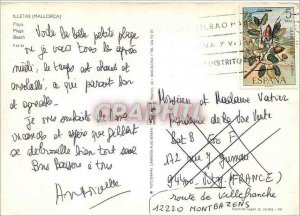 ILLETAS (MALLORCA)
Playa
Plage
Beach
BILBAO
DISTRITO
ESPAÑA
Voilà la belle petite plage
où je vais tous les après
midi, le temps est chaud et
ensoleillé, à qui parait bon
et agréable.
Je vous souhaite de bonnes
vacances et espère que
se débrouille bien tout seul
Bons baisers à tous
Antoinette
Monsieur et Madame Vatier
Résidence de la Rive Verte
Bat B
172 rue
94400 Vitry (FRANCE)
route de Villefranche
12220 MONTBAZENS
CPARAMA